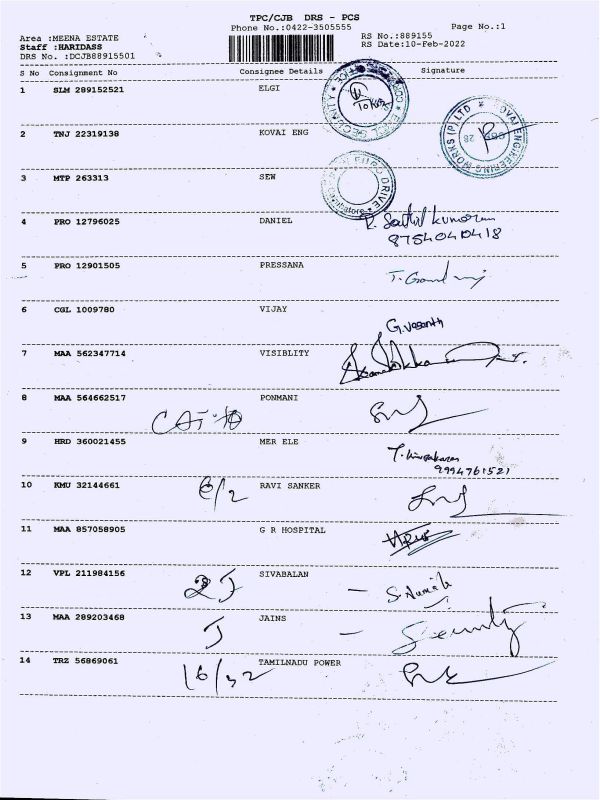 TPC/CJB DRS - PCS
Phone No.:0422-3505555
Page No.:1
Area :MEENA ESTATE
Staff :HARIDASS
DRS No. :DCJB88915501
RS No.:889155
RS Date:10-Feb-2022
S No Consignment No Consignee Details Signature
1 SLM 289152521 ELGI
2 TNJ 22319138 KOVAI ENG
3 MTP 263313 SEW
4 PRO 12796025 DANIEL
8754040418
5 PRO 12901505 PRESSANA
6 CGL 1009780 VIJAY
G.Vasanth
7 MAA 562347714 VISIBLITY
8 MAA 564662517 PONMANI
9 HRD 360021455 MER ELE
9994761521
10 KMU 32144661 6/2 RAVI SANKER
11 MAA 857058905 G R HOSPITAL
12 VPL 211984156 2J SIVABALAN
13 MAA 289203468 J JAINS - Security
14 TRZ 56869061 16/32 TAMILNADU POWER